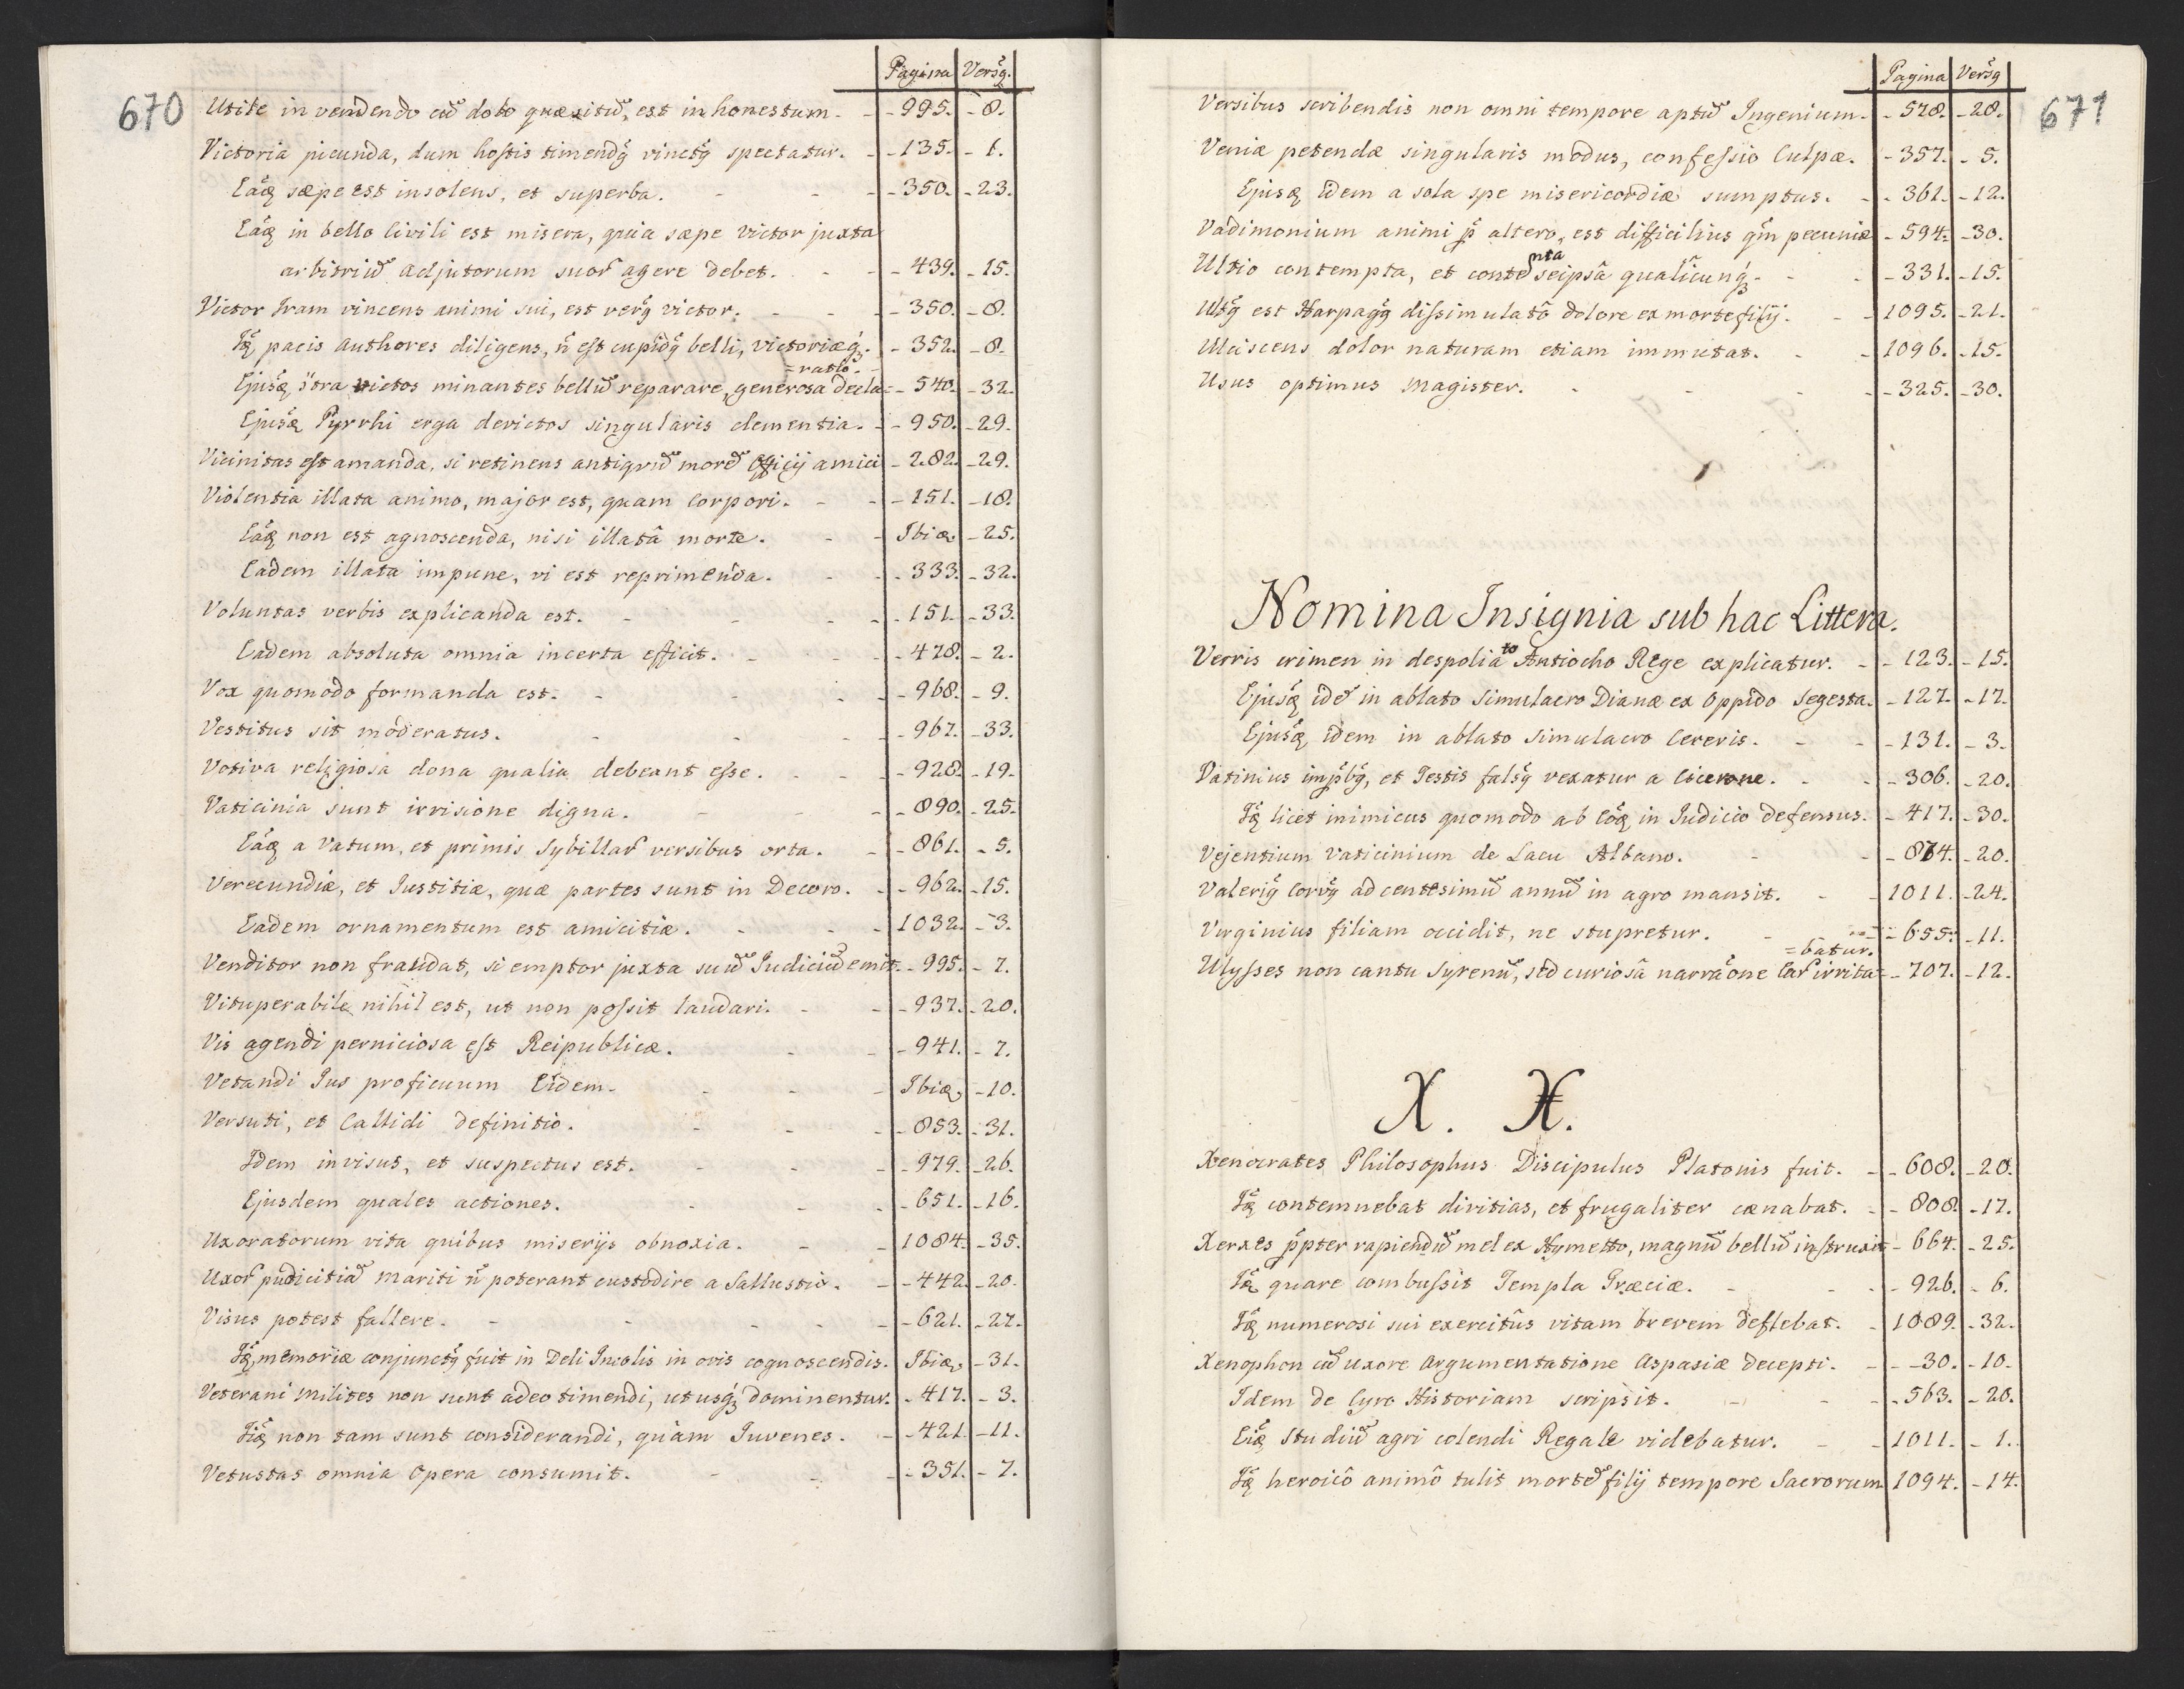 Pagina Versꝯ.
670
Utile in vendendo cũ dolo quæsitũ, est inhonestum. - 995. - 8.
Victoria jucunda, dum hostis timendꝯ vinctꝯ spectatur. - 135. - 1.
Eãꝗ sæpe est insolens, et superba. - 350. - 23.
Eãꝗ in bello Civili est misera, quia sæpe victor juxta
arbitriũ adjutorum suoꝝ agere debet. - 439. - 15.
Victor Iram vincens animi sui, est verꝯ victor. - 350. - 8.
Iꝗ̃ pacis authores diligens, ñ est cupidꝯ belli, victoriæq́ꝫ. - 352. - 8.
=ratio.
Ejusꝗ̃ Ɔtra victos minantes bellũ reparare, generosa decla= - 540. - 32.
Ejusꝗ̃ Pyrrhi erga devictos singularis clementia. - 950. - 29.
Vicinitas est amanda, si retinens antiquũ morẽ Officij amici - 282. - 29.
Violentia illata animo, major est, quam Corpori. - 151. - 18.
Eãꝗ non est agnoscenda, nisi illatâ morte. - Ibiꝗ. - 25.
Eadem illata impune, vi est reprimenda. - 333. - 32.
Voluntas verbis explicanda est. - 151. - 33.
Eadem absoluta omnia incerta efficit. - 478. - 2.
Vox quomodo formanda est. - 968. - 9.
Vestitus sit moderatus. - 967. - 33.
Votiva religiosa dona qualia debeant esse. - 928. - 19.
Vaticinia sunt irrisione digna. - 890. - 25.
Eãꝗ a Vatum, et primis Sybillaꝝ versibus orta. - 861. - 5.
Verecundiæ, et Justitiæ, quæ partes sunt in Decoro. - 962. - 15.
Eadem ornamentum est amicitiæ. - 1032. - 3.
Venditor non fraudat, si emptor juxta suũ Iudiciũ emit. - 995. - 7.
Vituperabile nihil est, ut non possit laudari. - 937. - 20.
Vis agendi perniciosa est Reipublicæ. - 941. - 7.
Vetandi Jus proficuum Eidem. - Ibiꝗ. - 10.
Versuti, et Callidi definitio. - 853. - 31.
Idem invisus, et suspectus est. - 979. - 26.
Ejusdem quales actiones. - 651. - 16.
Uxoratorum vita quibus miserijs obnoxia. - 1084. - 35.
Uxoꝝ pudicitiã Mariti ñ poterant custodire a Sallustio. - 442. - 20.
Visus potest fallere. - 621. - 27.
Iꝗ̃ memoriæ conjunctꝯ fuit in Deli Incolis in ovis cognoscendis. Ibiꝗ. - 31.
Veterani Milites non sunt adeo timendi, ut usq́ꝫ dominentur. - 417. - 3.
Iiꝗ̃ non tam sunt considerandi, quàm Juvenes. - 421. - 11.
Vetustas omnia Opera consumit. - 351. - 7.
Pagina Versꝯ
671
Versibus scribendis non omni tempore aptũ Ingenium. - 578. - 28.
Veniæ petendæ singularis modus, confessio Culpæ. - 357. - 5.
Ejusꝗ idem a sola spe misericordiæ sumptus. - 361. - 12.
Vadimonium animi p̃ altero, est difficilius qm̃ pecuniæ - 594. - 30.
nta
Ultio contempta, et conte seipsâ qualicunq́ꝫ. - 331. - 15.
Ultꝯ est Harpagꝯ dissimulatô dolore ex morte filij. - 1095. - 21.
Ulciscens dolor naturam etiam immutat. - 1096. - 15.
Usus optimus Magister. - 325. - 30.
Nomina Insignia sub hac Littera.
Verris crimen in despoliato Antiocho Rege explicatur. - 123. - 15.
Ejusꝗ̃ idẽ in ablato Simulacro Dianæ ex Oppido Segesta. - 127. - 17.
Ejusꝗ̃ idem in ablato Simulacro Cereris. - 131. - 3.
Vatinius imp̃bꝯ, et Testis falsꝯ vexatur a Cicerone. - 306. - 20.
Iꝗ̃ licet inimicus quomodo ab Eõꝗ in Iudicio defensus. - 417. - 30.
Vejentium Vaticinium de Lacu Albano. - 874. - 20.
Valeriꝯ Corvꝯ ad centesimũ annũ in agro mansit. - 1011. - 24.
Virginius filiam occidit, ne stupretur. - 655. - 11.
=batur.
Ulysses non cantu Syrenũ, sed curiosâ narraõne Eaꝝ irrita= - 707. - 12.
X. X.
Xenocrates Philosophus Discipulus Platonis fuit. - 608. - 20.
Iꝗ̃ contemnebat divitias, et frugaliter cænabat. - 808. - 17.
Xerxes p̃pter rapiendũ mel ex Hymetto, magnũ bellũ instruxit - 664. - 25.
Iꝗ̃ quare combussit Templa Græciæ. - 926. - 6.
Iꝗ̃ numerosi sui exercitûs vitam brevem deflebat. - 1089. - 32.
Xenophon cũ uxore Argumentatione Aspasiæ decepti. - 30. - 10.
Idem de Cyro Historiam scripsit. - 563. - 20.
Eiꝗ̃ studiũ agri colendi Regale videbatur. - 1011. - 1.
Iꝗ̃ heroicô animô tulit mortẽ filij tempore Sacrorum 1094. - 14.